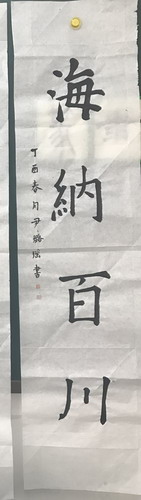 海納百川
丁酉春月尹
書